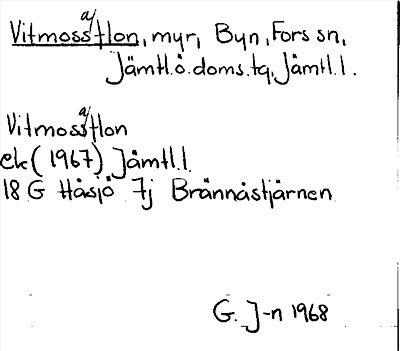 Vitmossaflon, myr, Byn, Fors sn,
Jämtl.ö.doms.tg, Jämtl.l.
Vitmossaflon
ek (1967) Jämtl.l.
18 G Håsjö 7j Brännåstjärnen
G. J-n 1968